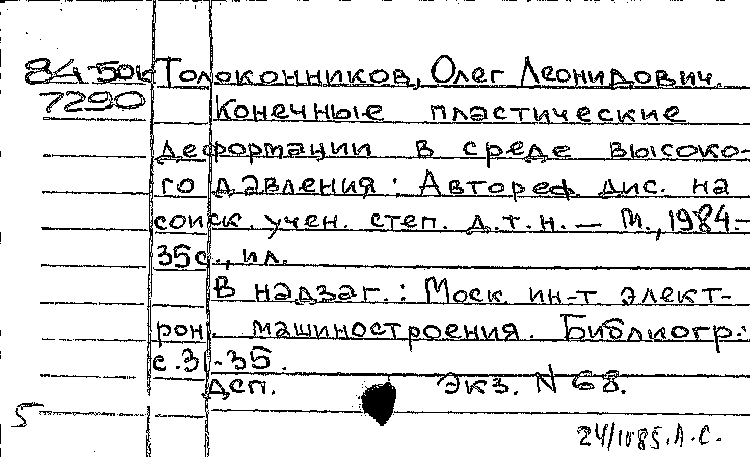 84-50к Толоконников, Олег Леонидович.
7290 Конечные пластические
деформации в среде высоко-
го давления: Автореф. дис. на
соиск. учен. степ. д.т.н. — М., 1984.-
35с., ил.
В надзаг.: Моск. ин-т элект-
рон. машиностроения. Библиогр.:
с.31-35.
ДСП. Экз. N 68.
5
А.С.